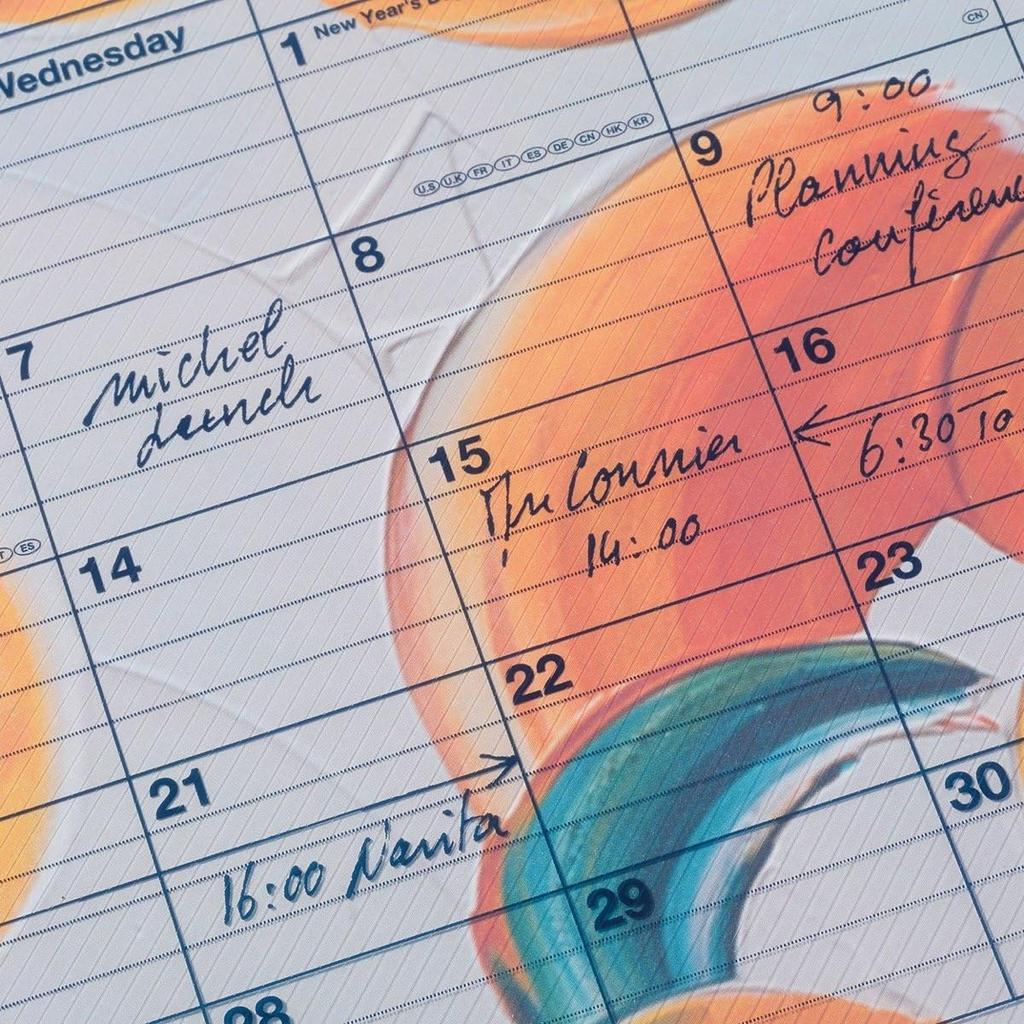 Wednesday
1 New Year's D
CN
US UK FR IT ES DE CN HK KR
7
michel
Lunch
8
9
9:00
Planning
Conference
ES
14
15
Mr Connier
14:00
16
6:30 To
21
16:00 Narita
22
23
28
29
30